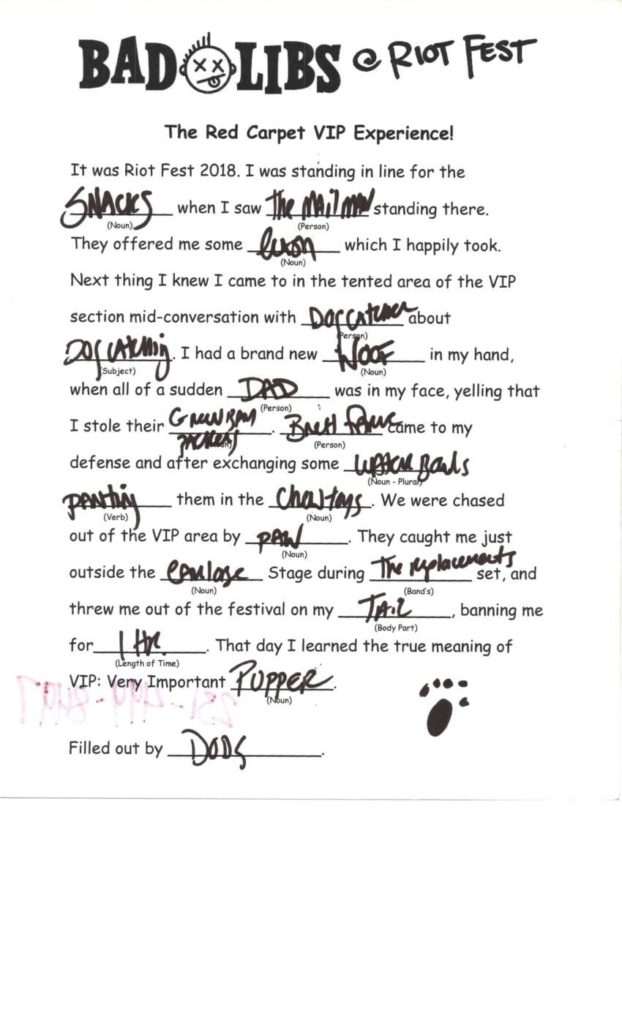 BAD LIBS @ RIOT FEST
The Red Carpet VIP Experience!
It was Riot Fest 2018. I was standing in line for the
SNACKS when I saw The MAilman standing there.
(Noun) (Person)
They offered me some which I happily took.
(Noun)
Next thing I knew I came to in the tented area of the VIP
section mid-conversation with DOgCATcher about
(Person)
DOg CATching. I had a brand new WOOF in my hand,
(Subject) (Noun)
when all of a sudden DAD was in my face, yelling that
(Person)
I stole their Green BAy PACKERS. Brett FAvre came to my
(Noun) (Person)
defense and after exchanging some wATER Bowls
(Noun - Plural)
pANTing them in the . We were chased
(Verb) (Noun)
out of the VIP area by pAW. They caught me just
(Noun)
outside the Stage during The replacements set, and
(Noun) (Band's)
threw me out of the festival on my TAIL, banning me
(Body Part)
for 1 HR. That day I learned the true meaning of
(Length of Time)
VIP: Very Important PUPPER.
(Noun)
Filled out by DOgS.